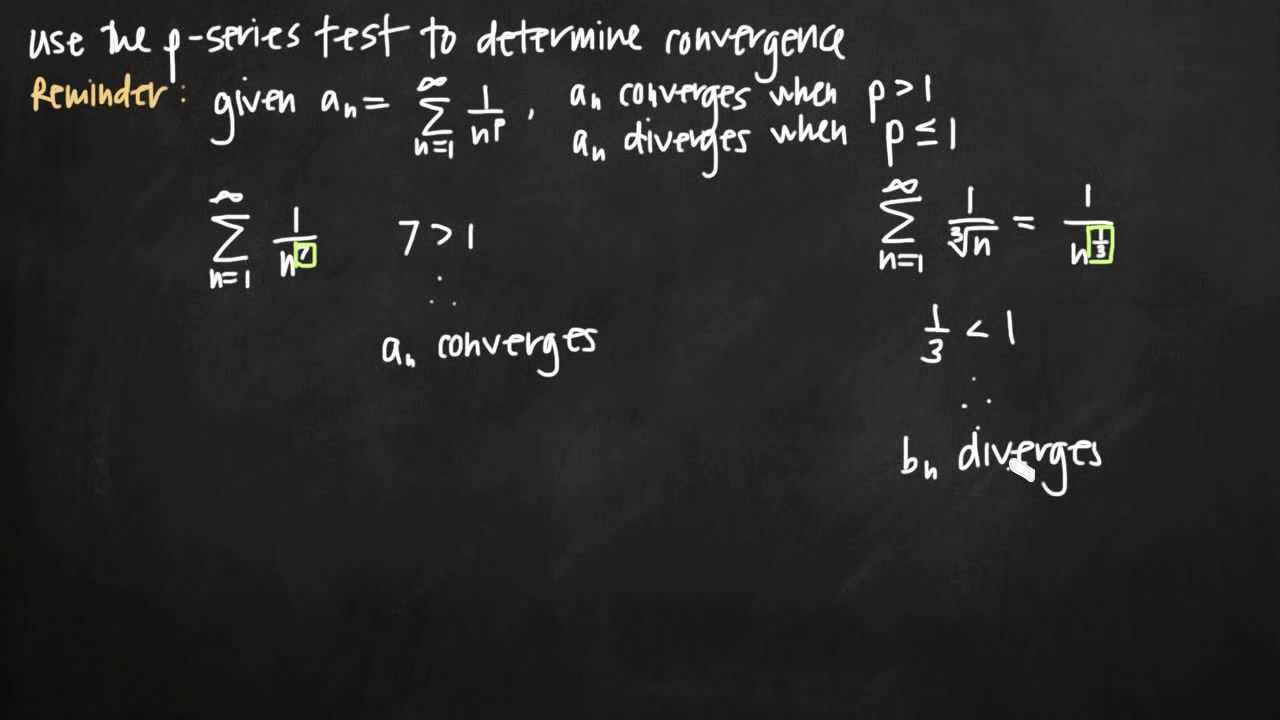 use the p-series test to determine convergence
Reminder: given aₙ = ∑ₙ₌₁^∞ 1/nᵖ, aₙ converges when p > 1
aₙ diverges when p ≤ 1
∑ₙ₌₁^∞ 1/n⁷ 7 > 1
∴
aₙ converges
∑ₙ₌₁^∞ 1/∛n = 1/n^(1/3)
1/3 < 1
∴
bₙ diverges